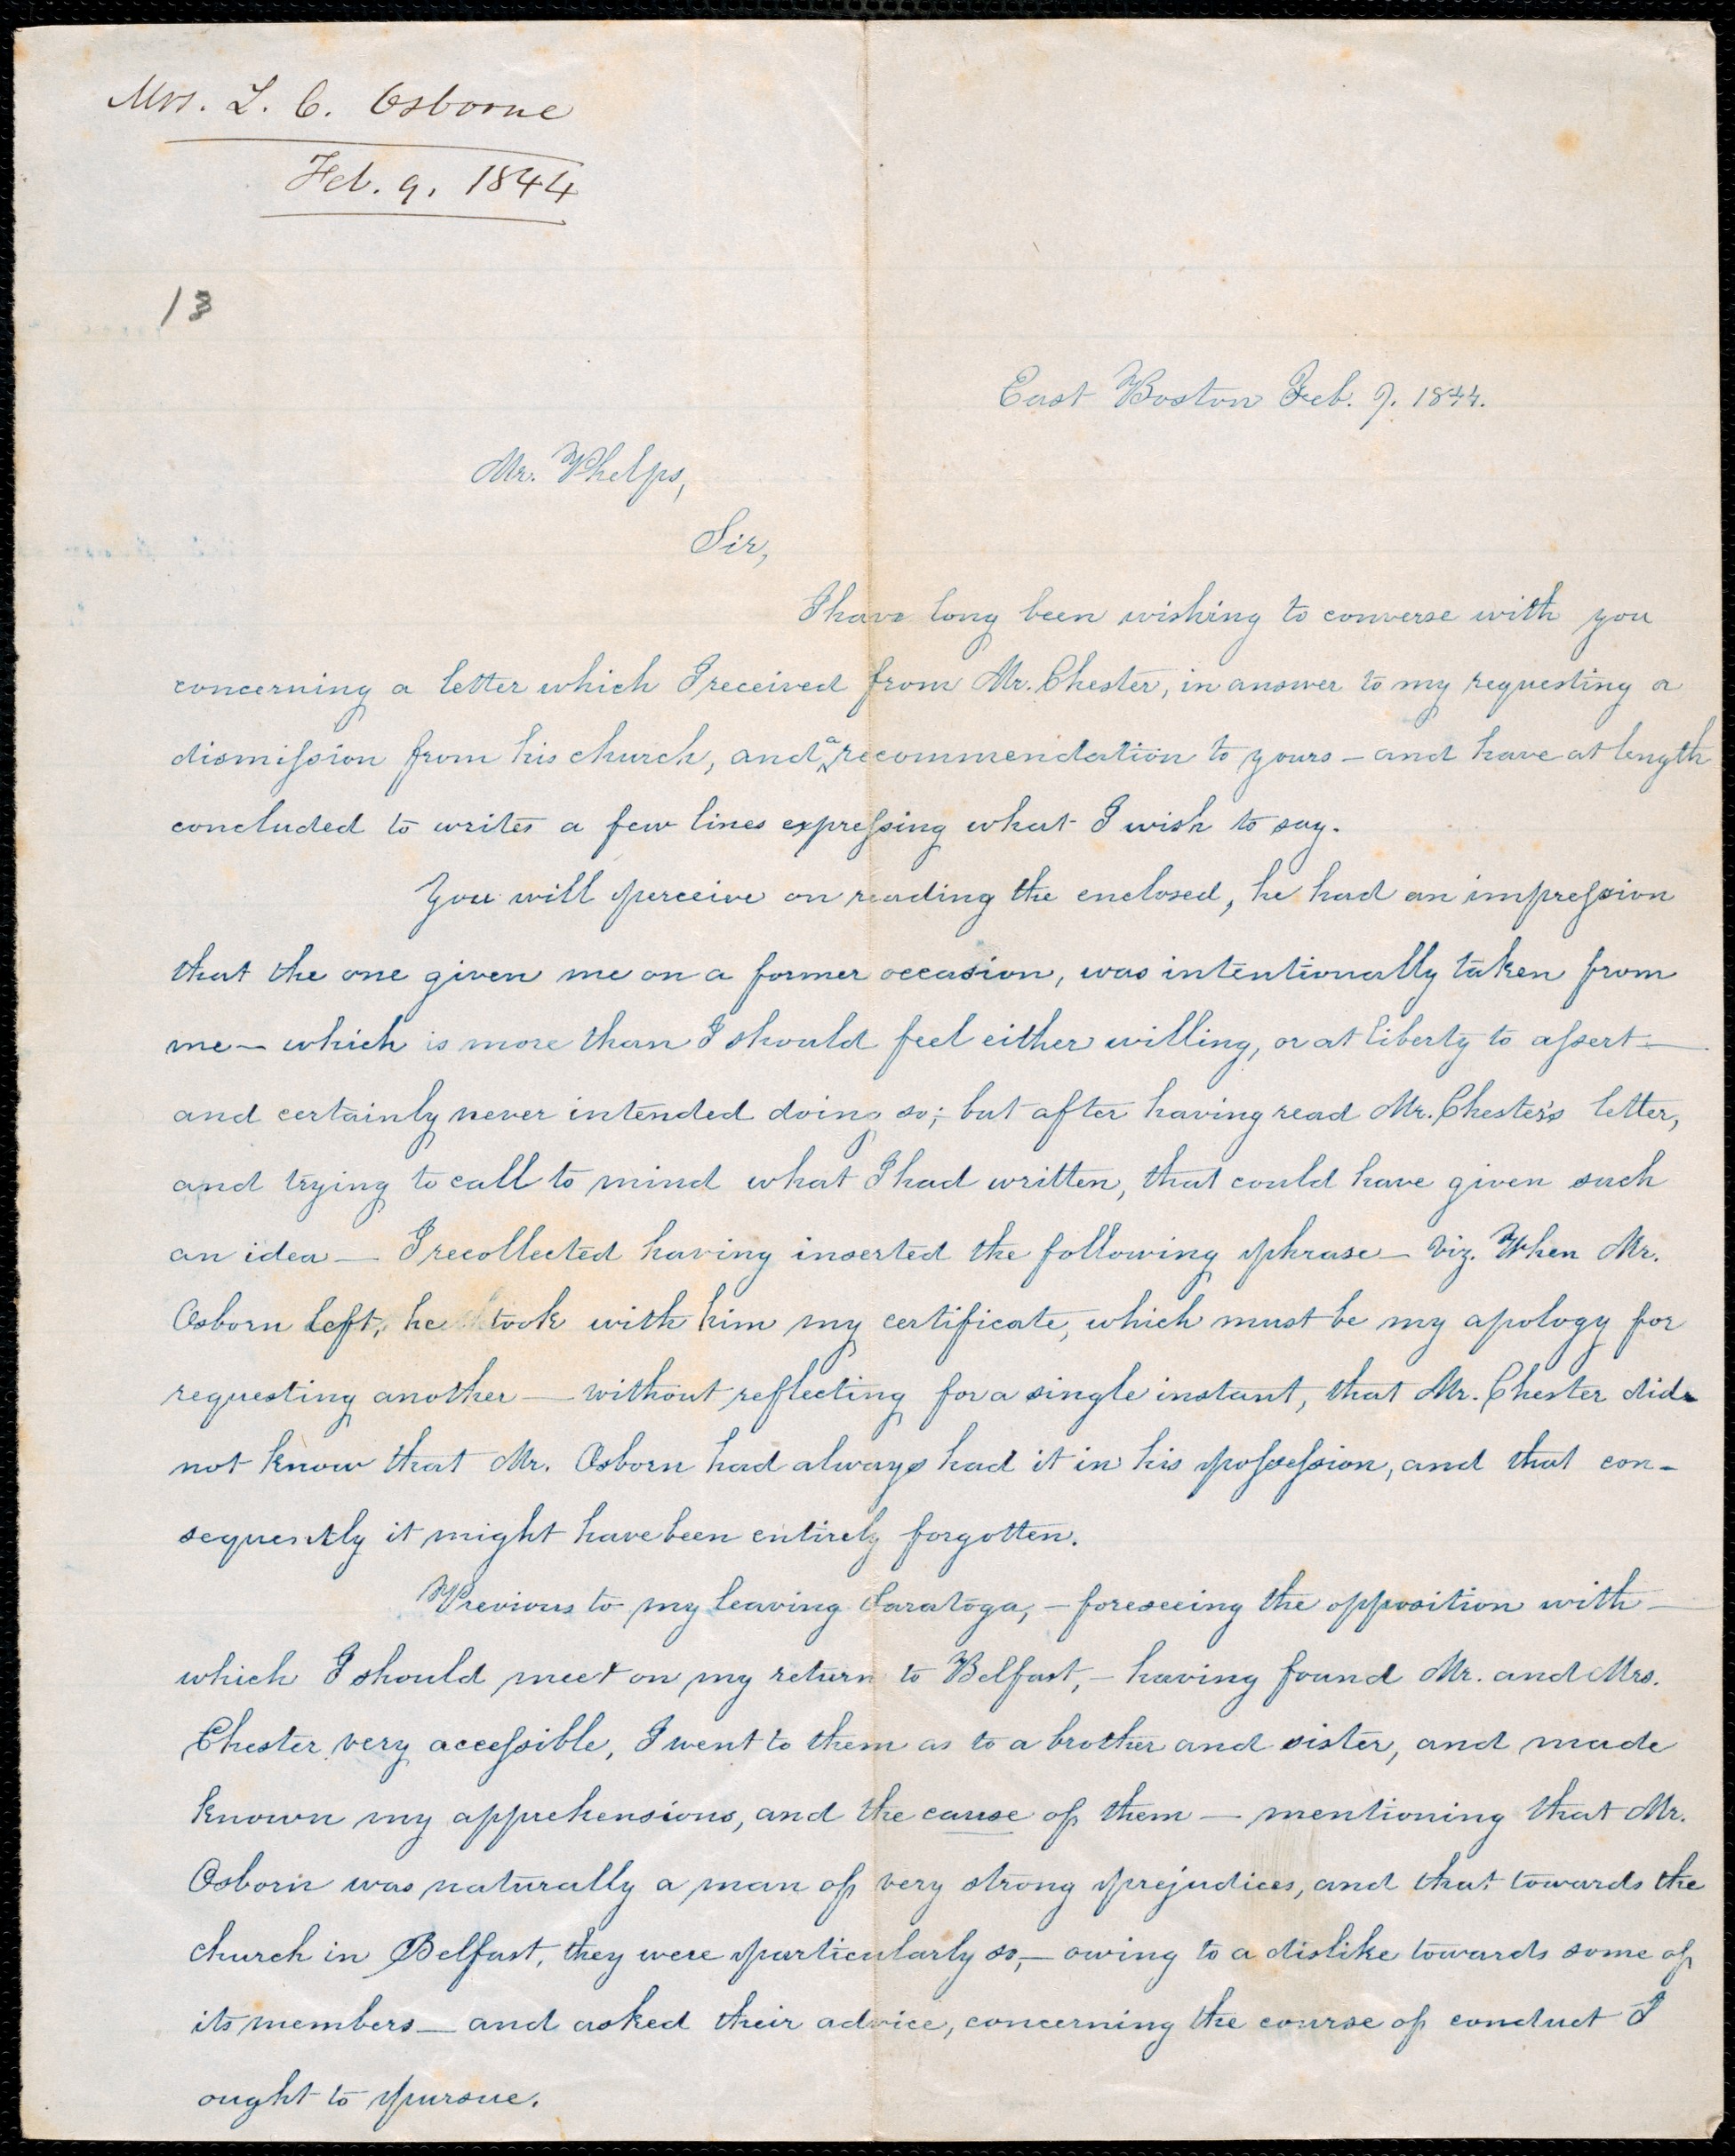 Mrs. L. C. Osborne
Feb. 9. 1844
13
East Boston Feb. 9. 1844.
Mr. Phelps,
Sir,
I have long been wishing to converse with you
concerning a letter which I received from Mr. Chester, in answer to my requesting a
dismission from his church, and a recommendation to yours – and have at length
concluded to write a few lines expressing what I wish to say.
You will perceive on reading the enclosed, he had an impression
that the one given me on a former occasion, was intentionally taken from
me – which is more than I should feel either willing, or at liberty to assert –
and certainly never intended doing so; but after having read Mr. Chester's letter,
and trying to call to mind what I had written, that could have given such
an idea – I recollected having inserted the following phrase – viz. When Mr.
Osborn left, he took with him my certificate, which must be my apology for
requesting another – without reflecting for a single instant, that Mr. Chester did
not know that Mr. Osborn had always had it in his possession, and that con-
sequently it might have been entirely forgotten.
Previous to my leaving Saratoga, – foreseeing the opposition with
which I should meet on my return to Belfast, – having found Mr. and Mrs.
Chester very accessible, I went to them as to a brother and sister, and made
known my apprehensions, and the cause of them – mentioning that Mr.
Osborn was naturally a man of very strong prejudices, and that towards the
church in Belfast, they were particularly so, – owing to a dislike towards some of
its members – and asked their advice, concerning the course of conduct I
ought to pursue.